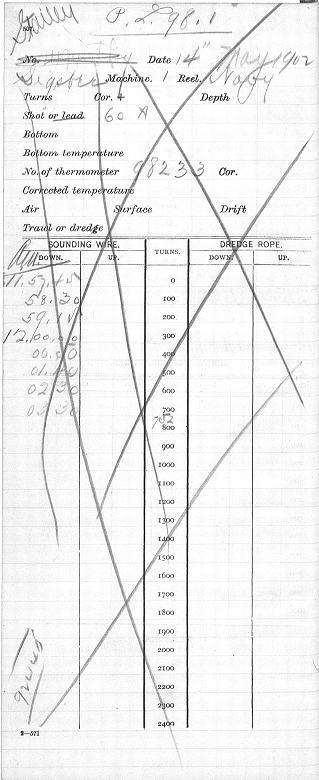 P. L. 98.1
No. Date 14" May 1902
Sigsbee Machine. 1 Reel, Navy
Turns Cor. 4 Depth
Shot or lead 60 #
Bottom
Bottom temperature
No. of thermometer 98233 Cor.
Corrected temperature
Air Surface Drift
Trawl or dredge
SOUNDING WIRE. TURNS. DREDGE ROPE.
DOWN. UP. DOWN. UP.
11.57.45 0
58.30 100
59.15 200
12.00.00 300
400
500
02 30 600
03 30 700
782
800
900
1000
1100
1200
1300
1400
1500
1600
1700
1800
1900
2000
2100
2200
2300
2400
2—571